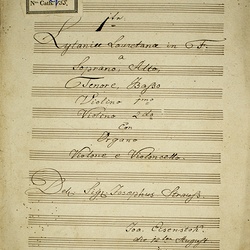 1ma
Lytaniae Lauretanae in F.
a
Soprano, Alto,
Tenore, Basso
Violino Imo
Violino 2do
Con
Organo
Violone e Violoncello.
Del Sigr Josephus Strauss.
Joa. Eisenstok
die
August